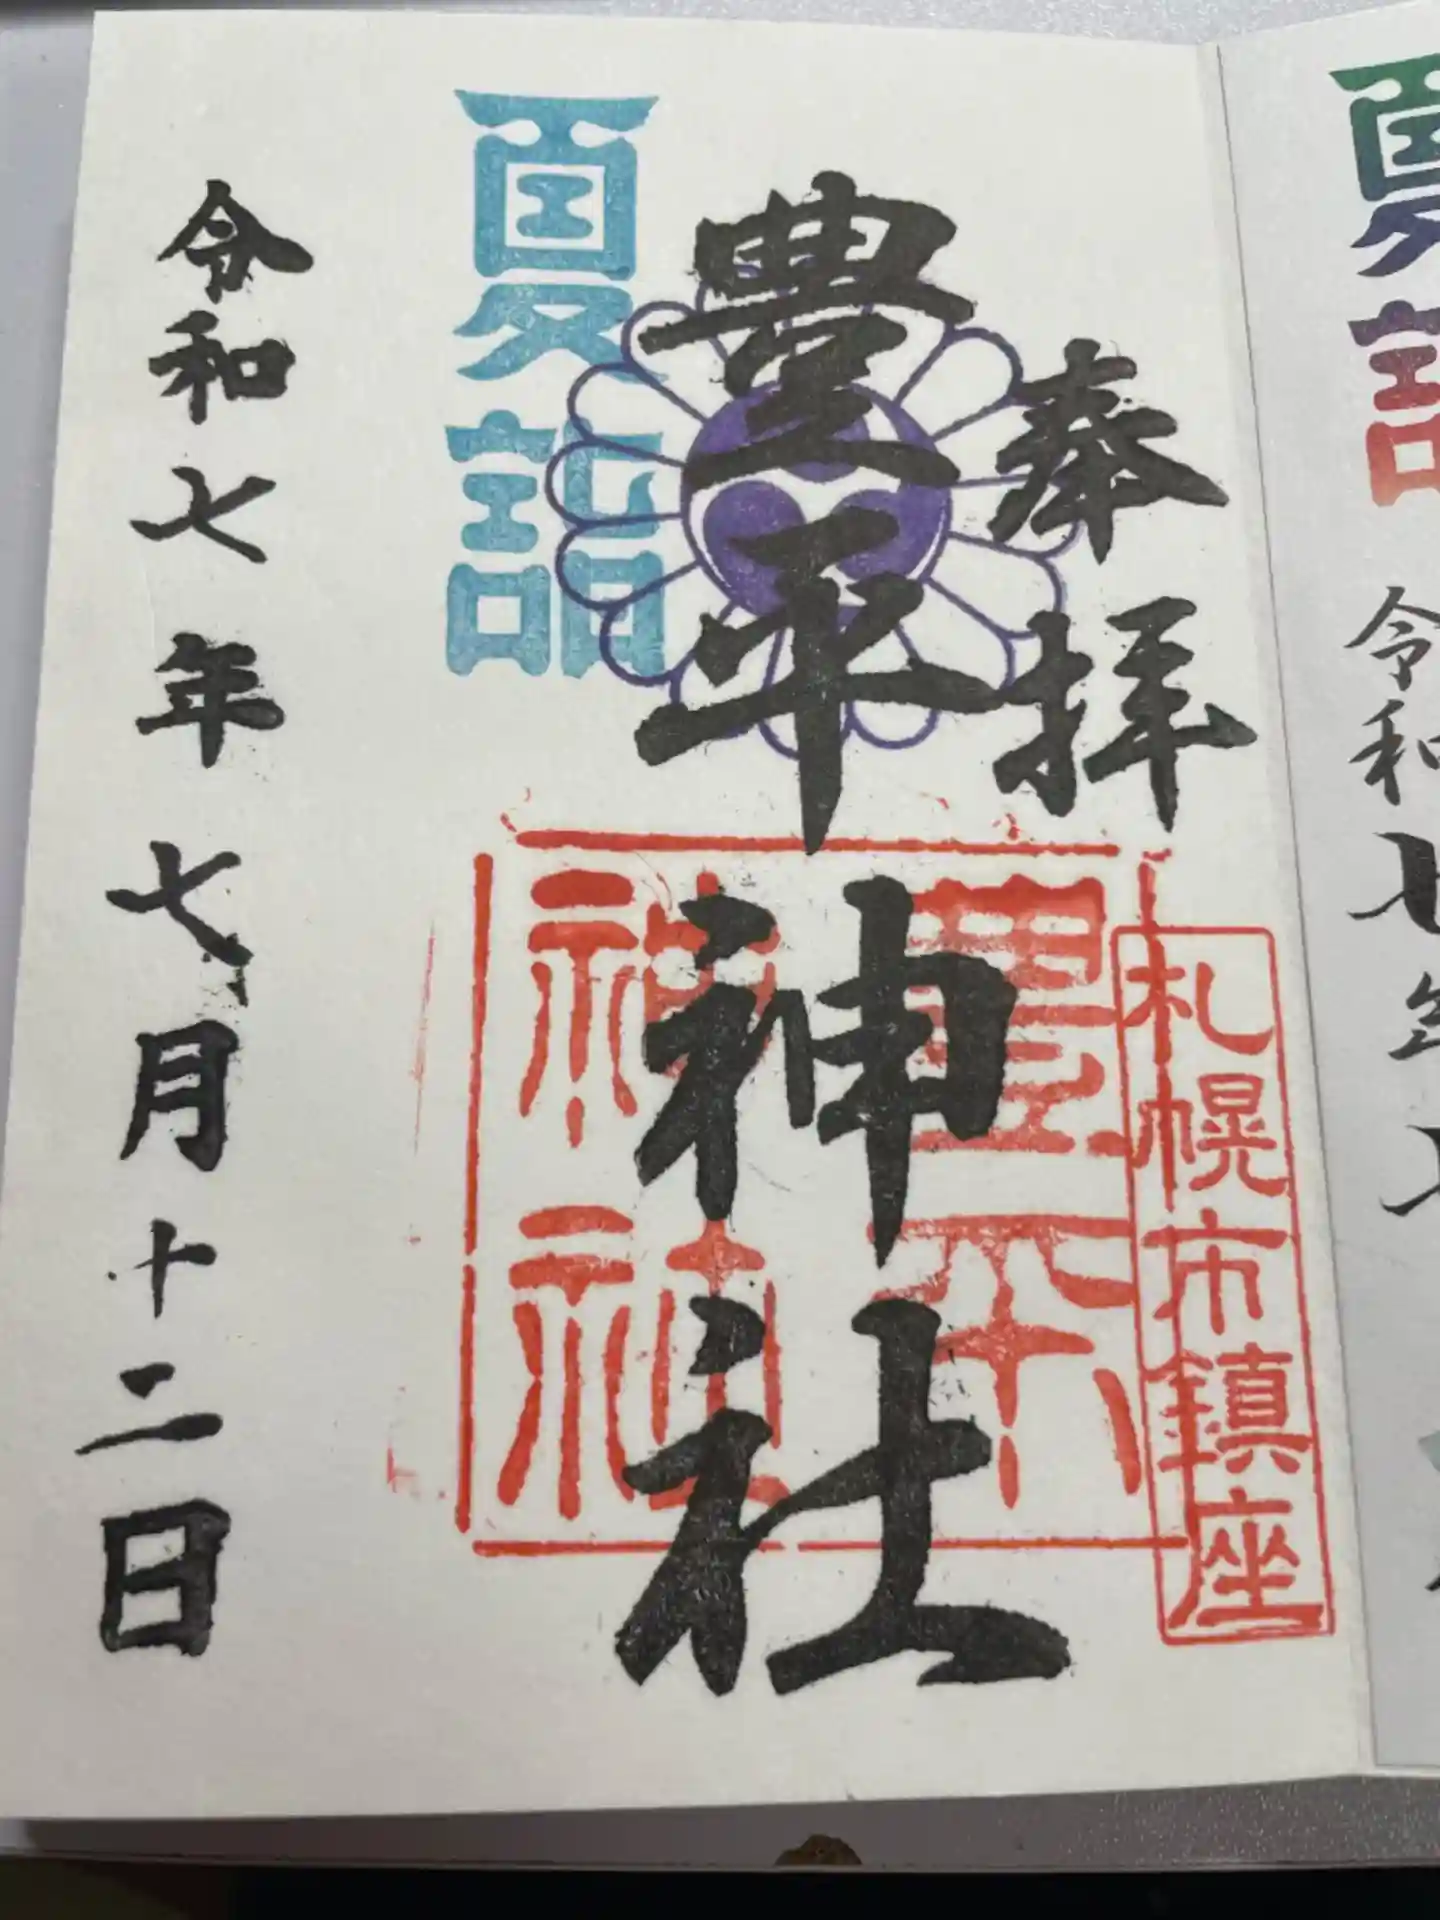 夏詣
令和七年七
奉拝
豊平神社
豊平神社
札幌市鎮座
夏詣
令和七年七月十二日